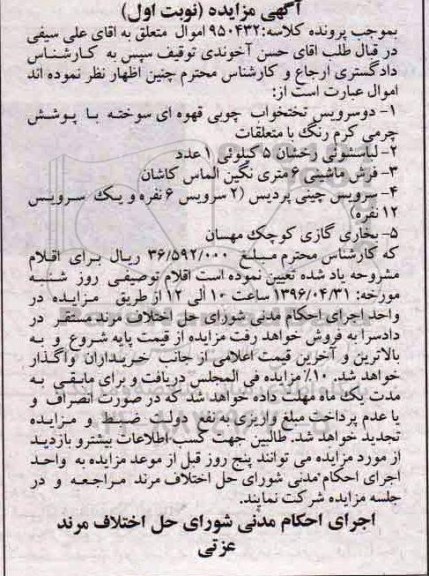 آگهی مزایده (نوبت اول)
بموجب پرونده کلاسه:۹۵۰۴۳۲ اموال متعلق به اقای علی سیفی
در قبال طلب اقای حسن آخوندی توقیف سپس به کارشناس
دادگستری ارجاع و کارشناس محترم چنین اظهار نظر نموده اند
اموال عبارت است از:
۱- دوسرویس تختخواب چوبی قهوه ای سوخته با پوشش
چرمی کرم رنگ با متعلقات
۲- لباسشوئی رخشان ۵ کیلوئی ۱ عدد
۳- فرش ماشینی ۶ متری نگین الماس کاشان
۴- سرویس چینی پردیس (۲ سرویس ۶ نفره و یک سرویس
۱۲ نفره)
۵- بخاری گازی کوچک مهسان
که کارشناس محترم مبلغ ۳۶/۵۹۲/۰۰۰ ریال برای اقلام
مشروحه یاد شده تعیین نموده است اقلام توصیفی روز شنبه
مورخه: ۱۳۹۶/۰۴/۳۱ ساعت ۱۰ الی ۱۲ از طریق مزایده در
واحد اجرای احکام مدنی شورای حل اختلاف مرند مستقر در
دادسرا به فروش خواهد رفت مزایده از قیمت پایه شروع و به
بالاترین و آخرین قیمت اعلامی از جانب خریداران واگذار
خواهد شد. ۱۰٪ مزایده فی المجلس دریافت و برای مابقی به
مدت یک ماه مهلت داده خواهد شد که در صورت انصراف و
یا عدم پرداخت مبلغ واریزی به نفع دولت ضبط و مزایده
تجدید خواهد شد. طالبین جهت کسب اطلاعات بیشترو بازدید
از مورد مزایده می توانند پنج روز قبل از موعد مزایده به واحد
اجرای احکام مدنی شورای حل اختلاف مرند مراجعه و در
جلسه مزایده شرکت نمایند.
اجرای احکام مدنی شورای حل اختلاف مرند
عزتی